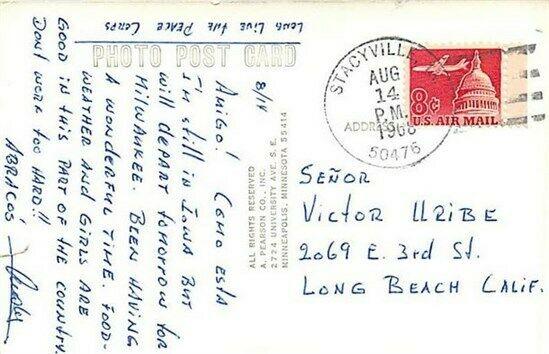 LONG LIVE THE PEACE CORPS
PHOTO POST CARD
8/14
AMIGO! COMO ESTA
I'M STILL IN IOWA BUT
WILL DEPART TOMORROW FOR
MILWAUKEE. BEEN HAVING
A WONDERFUL TIME. FOOD-
WEATHER AND GIRLS ARE
GOOD IN THIS PART OF THE COUNTRY.
DON'T WORK TOO HARD!!
ABRACOS
ALL RIGHTS RESERVED
A. PEARSON CO., INC.
2724 UNIVERSITY AVE. S. E.
MINNEAPOLIS, MINNESOTA 55414
STACYVILLE
AUG
14
P.M.
1968
50476
8¢
U.S. AIR MAIL
ADDRESS
SEÑOR
VICTOR URIBE
2069 E. 3rd St.
LONG BEACH CALIF.